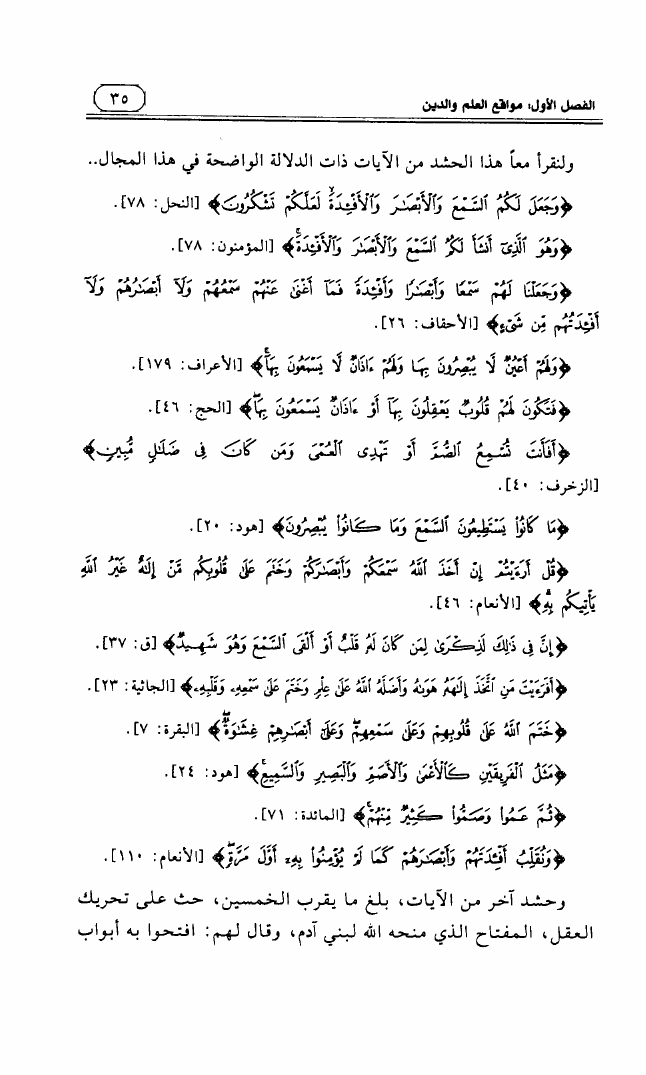 الفصل الأول: مواقع العلم والدين ٣٥
ولنقرأ معاً هذا الحشد من الآيات ذات الدلالة الواضحة في هذا المجال..
﴿وَجَعَلَ لَكُمُ ٱلسَّمْعَ وَٱلْأَبْصَٰرَ وَٱلْأَفْـِٔدَةَ ۙ لَعَلَّكُمْ تَشْكُرُونَ﴾ [النحل: ٧٨].
﴿وَهُوَ ٱلَّذِىٓ أَنشَأَ لَكُمُ ٱلسَّمْعَ وَٱلْأَبْصَٰرَ وَٱلْأَفْـِٔدَةَ ۚ﴾ [المؤمنون: ٧٨].
﴿وَجَعَلْنَا لَهُمْ سَمْعًا وَأَبْصَٰرًا وَأَفْـِٔدَةً فَمَآ أَغْنَىٰ عَنْهُمْ سَمْعُهُمْ وَلَآ أَبْصَٰرُهُمْ وَلَآ
أَفْـِٔدَتُهُم مِّن شَىْءٍ﴾ [الأحقاف: ٢٦].
﴿وَلَهُمْ أَعْيُنٌ لَّا يُبْصِرُونَ بِهَا وَلَهُمْ ءَاذَانٌ لَّا يَسْمَعُونَ بِهَآ ۚ﴾ [الأعراف: ١٧٩].
﴿فَتَكُونَ لَهُمْ قُلُوبٌ يَعْقِلُونَ بِهَآ أَوْ ءَاذَانٌ يَسْمَعُونَ بِهَا ۖ﴾ [الحج: ٤٦].
﴿أَفَأَنتَ تُسْمِعُ ٱلصُّمَّ أَوْ تَهْدِى ٱلْعُمْىَ وَمَن كَانَ فِى ضَلَٰلٍ مُّبِينٍ﴾
[الزخرف: ٤٠].
﴿مَا كَانُوا۟ يَسْتَطِيعُونَ ٱلسَّمْعَ وَمَا كَانُوا۟ يُبْصِرُونَ﴾ [هود: ٢٠].
﴿قُلْ أَرَءَيْتُمْ إِنْ أَخَذَ ٱللَّهُ سَمْعَكُمْ وَأَبْصَٰرَكُمْ وَخَتَمَ عَلَىٰ قُلُوبِكُم مَّنْ إِلَٰهٌ غَيْرُ ٱللَّهِ
يَأْتِيكُم بِهِ ۗ﴾ [الأنعام: ٤٦].
﴿إِنَّ فِى ذَٰلِكَ لَذِكْرَىٰ لِمَن كَانَ لَهُۥ قَلْبٌ أَوْ أَلْقَى ٱلسَّمْعَ وَهُوَ شَهِيدٌ﴾ [ق: ٣٧].
﴿أَفَرَءَيْتَ مَنِ ٱتَّخَذَ إِلَٰهَهُۥ هَوَىٰهُ وَأَضَلَّهُ ٱللَّهُ عَلَىٰ عِلْمٍ وَخَتَمَ عَلَىٰ سَمْعِهِۦ وَقَلْبِهِۦ﴾ [الجاثية: ٢٣].
﴿خَتَمَ ٱللَّهُ عَلَىٰ قُلُوبِهِمْ وَعَلَىٰ سَمْعِهِمْ ۖ وَعَلَىٰٓ أَبْصَٰرِهِمْ غِشَٰوَةٌ ۖ﴾ [البقرة: ٧].
﴿مَثَلُ ٱلْفَرِيقَيْنِ كَٱلْأَعْمَىٰ وَٱلْأَصَمِّ وَٱلْبَصِيرِ وَٱلسَّمِيعِ ۚ﴾ [هود: ٢٤].
﴿ثُمَّ عَمُوا۟ وَصَمُّوا۟ كَثِيرٌ مِّنْهُمْ ۚ﴾ [المائدة: ٧١].
﴿وَنُقَلِّبُ أَفْـِٔدَتَهُمْ وَأَبْصَٰرَهُمْ كَمَا لَمْ يُؤْمِنُوا۟ بِهِۦٓ أَوَّلَ مَرَّةٍ ۖ﴾ [الأنعام: ١١٠].
وحشد آخر من الآيات، بلغ ما يقرب الخمسين، حث على تحريك
العقل، المفتاح الذي منحه الله لبني آدم، وقال لهم: افتحوا به أبواب